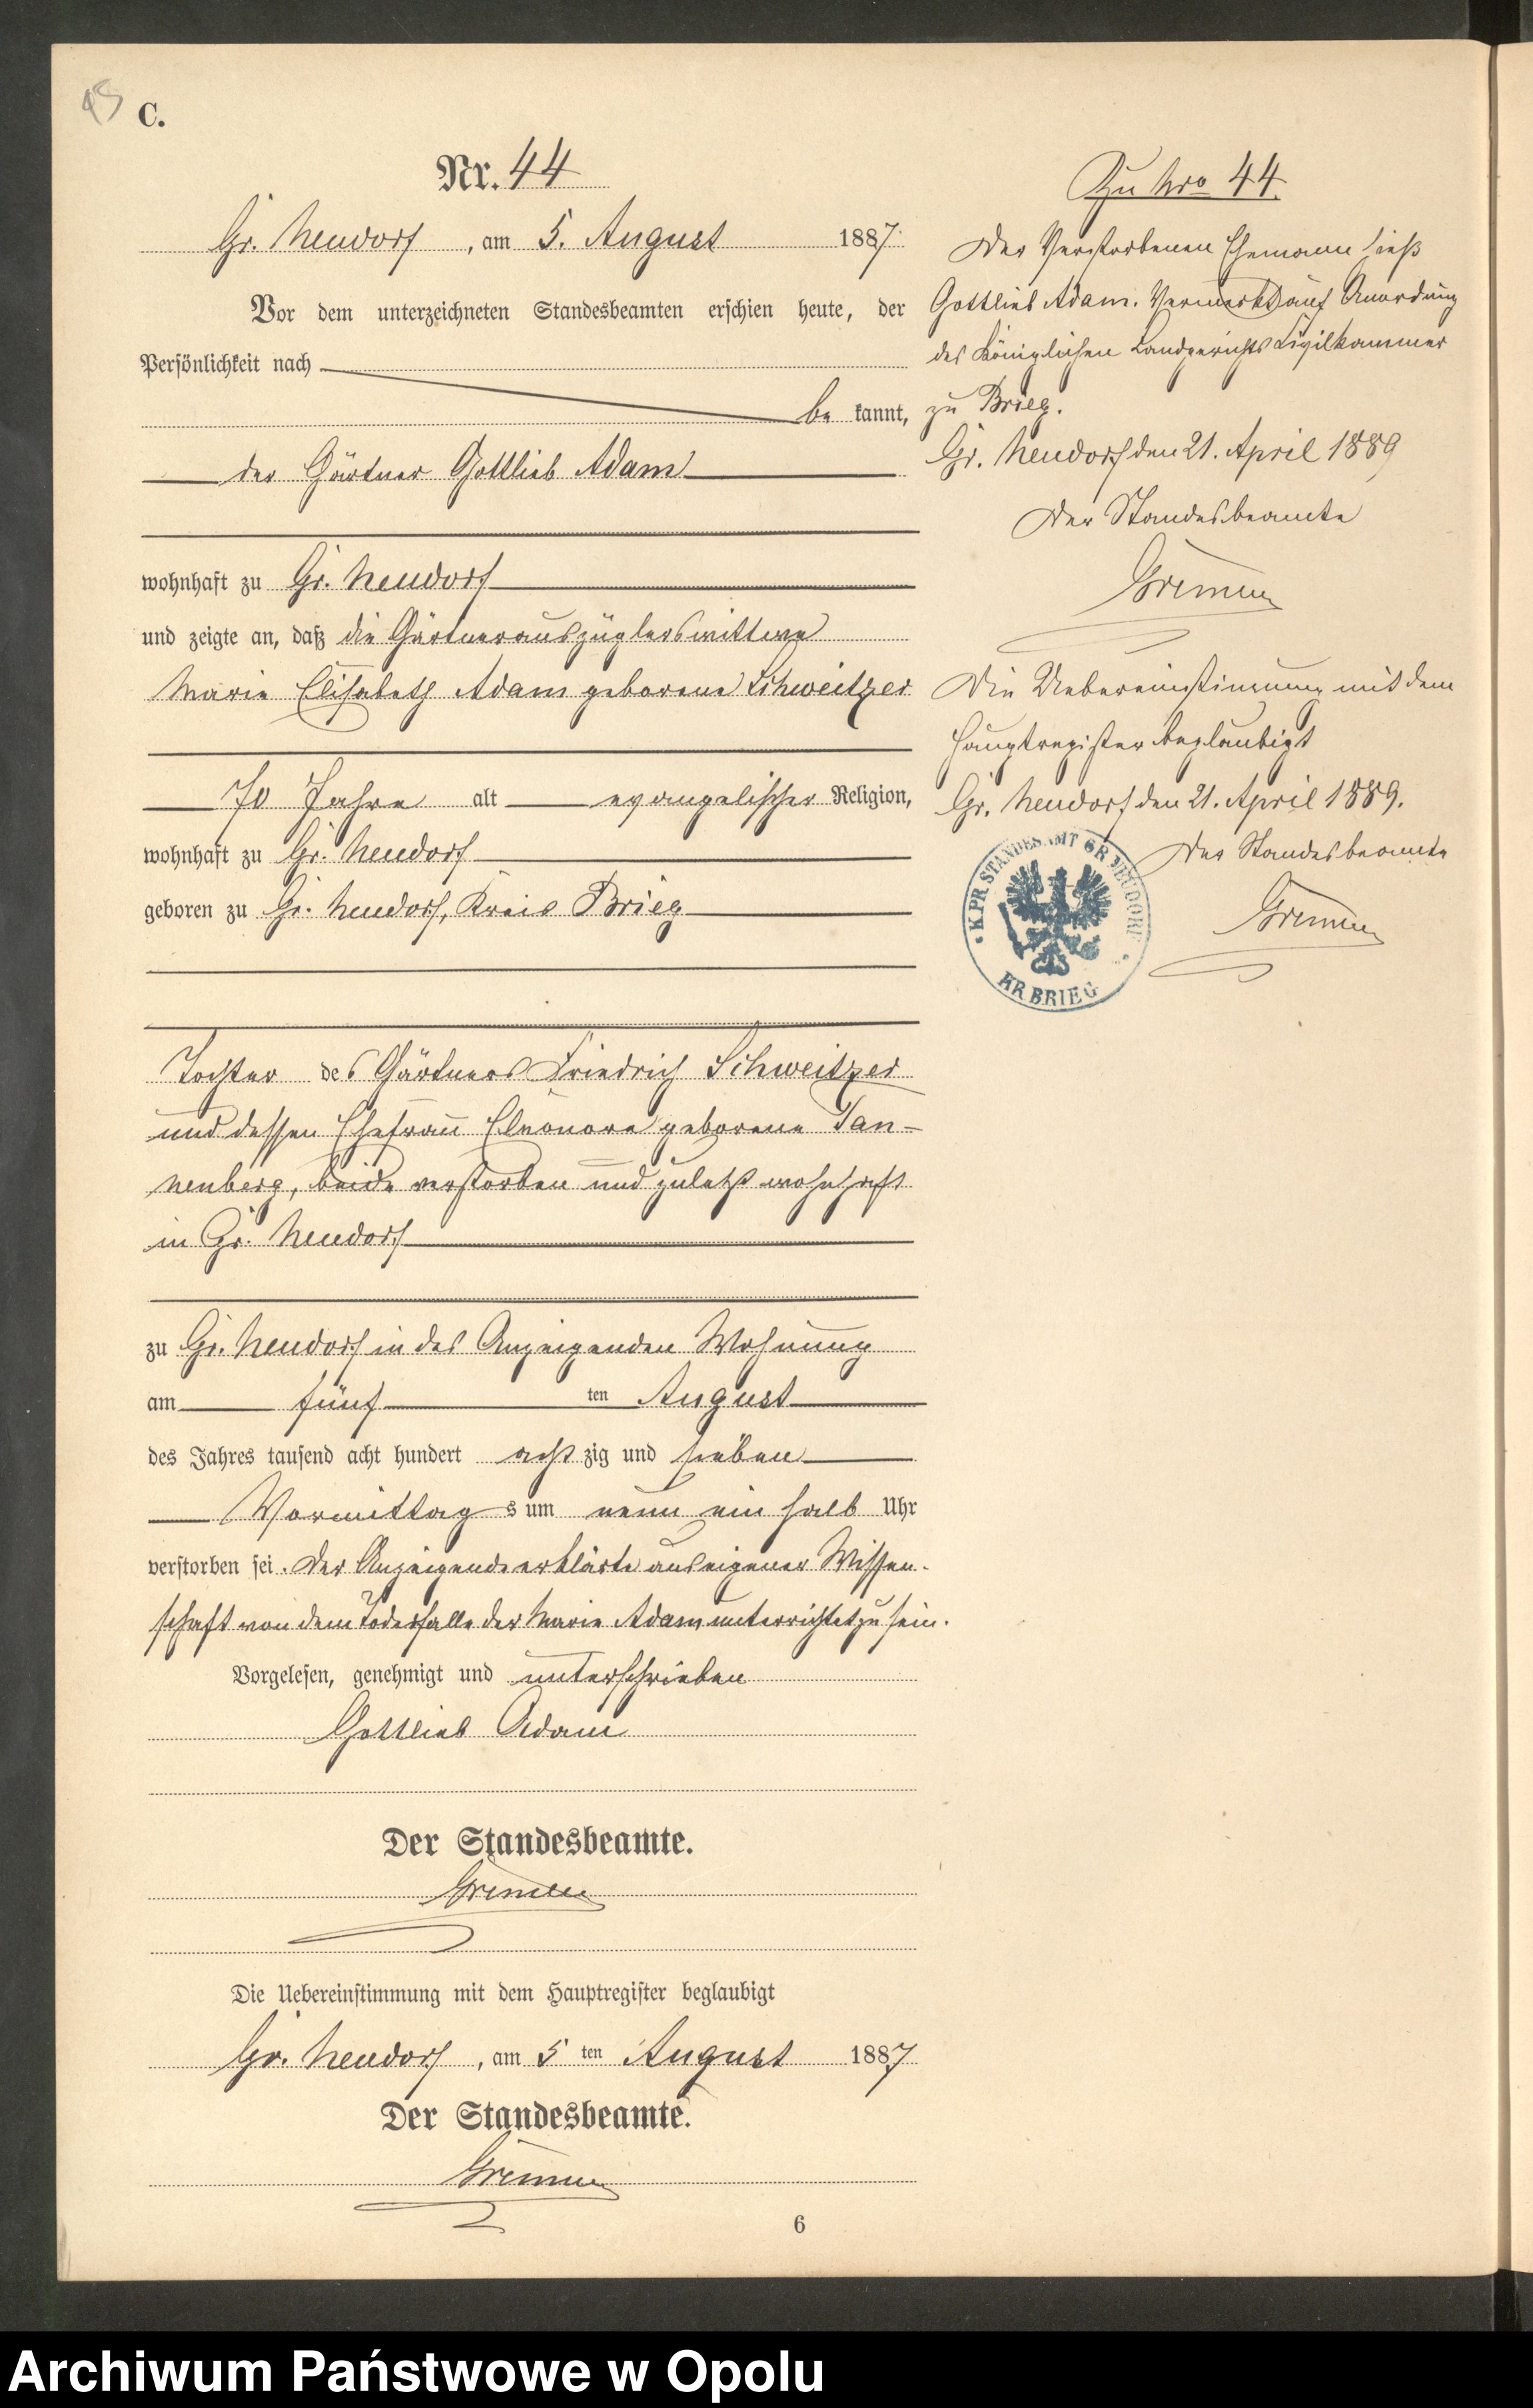 45
C.
Nr. 44
Gr. Neudorf, am 5. August 1887.
Vor dem unterzeichneten Standesbeamten erschien heute, der
Persönlichkeit nach
be kannt,
der Gärtner Gottlieb Adam
wohnhaft zu Gr. Neudorf
und zeigte an, daß die Gärtnerauszüglerswittwe
Marie Elisabeth Adam geborene Schweitzer
70 Jahre alt evangelischer Religion,
wohnhaft zu Gr. Neudorf
geboren zu Gr. Neudorf, Kreis Brieg
Tochter des Gärtners Friedrich Schweitzer
und dessen Ehefrau Eleonora geborene Tan-
nenberg, beide verstorben und zuletzt wohnhaft
in Gr. Neudorf
zu Gr. Neudorf in des Anzeigenden Wohnung
am fünf ten August
des Jahres tausend acht hundert acht zig und sieben
Vormittag s um neun ein halb Uhr
verstorben sei. Der Anzeigende erklärte aus eigener Wissen-
schaft von dem Todesfalle der Marie Adam unterrichtet zu sein.
Vorgelesen, genehmigt und unterschrieben
Gottlieb Adam
Der Standesbeamte.
Die Uebereinstimmung mit dem Hauptregister beglaubigt
Gr. Neudorf, am 5 ten August 1887
Der Standesbeamte.
6
Zu Nro 44.
Der Verstorbenen Ehemann hieß
Gottlieb Adam. Vermerkt auf Anordnung
der Königlichen Landgerichts Civilkammer
zu Brieg.
Gr. Neudorf den 21. April 1889
Der Standesbeamte
Die Uebereinstimmung mit dem
Hauptregister beglaubigt
Gr. Neudorf den 21. April 1889.
Der Standesbeamte
K. PR. STANDESAMT GR NEUDORF
KR BRIEG
Archiwum Państwowe w Opolu